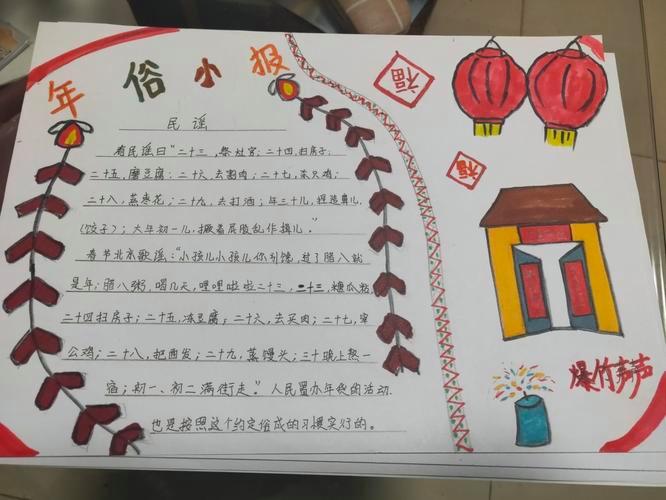 年俗小报
民谣
有民谣曰"二十三,祭灶官;二十四,扫房子;
二十五,磨豆腐;二十六,去割肉;二十七,杀只鸡;
二十八,蒸枣花;二十九,去打酒;年三十儿,捏造鼻儿
(饺子);大年初一儿,撅着屁股乱作揖儿。"
春节北京歌谣:"小孩儿小孩儿你别馋,过了腊八就
是年;腊八粥,喝几天,哩哩啦啦二十三;二十三,糖瓜粘;
二十四扫房子;二十五,冻豆腐;二十六,去买肉;二十七,宰
公鸡;二十八,把面发;二十九,蒸馒头;三十晚上熬一
宿;初一、初二满街走。"人民置办年货的活动,
也是按照这个约定俗成的习惯实行的。
福
福
爆竹声声